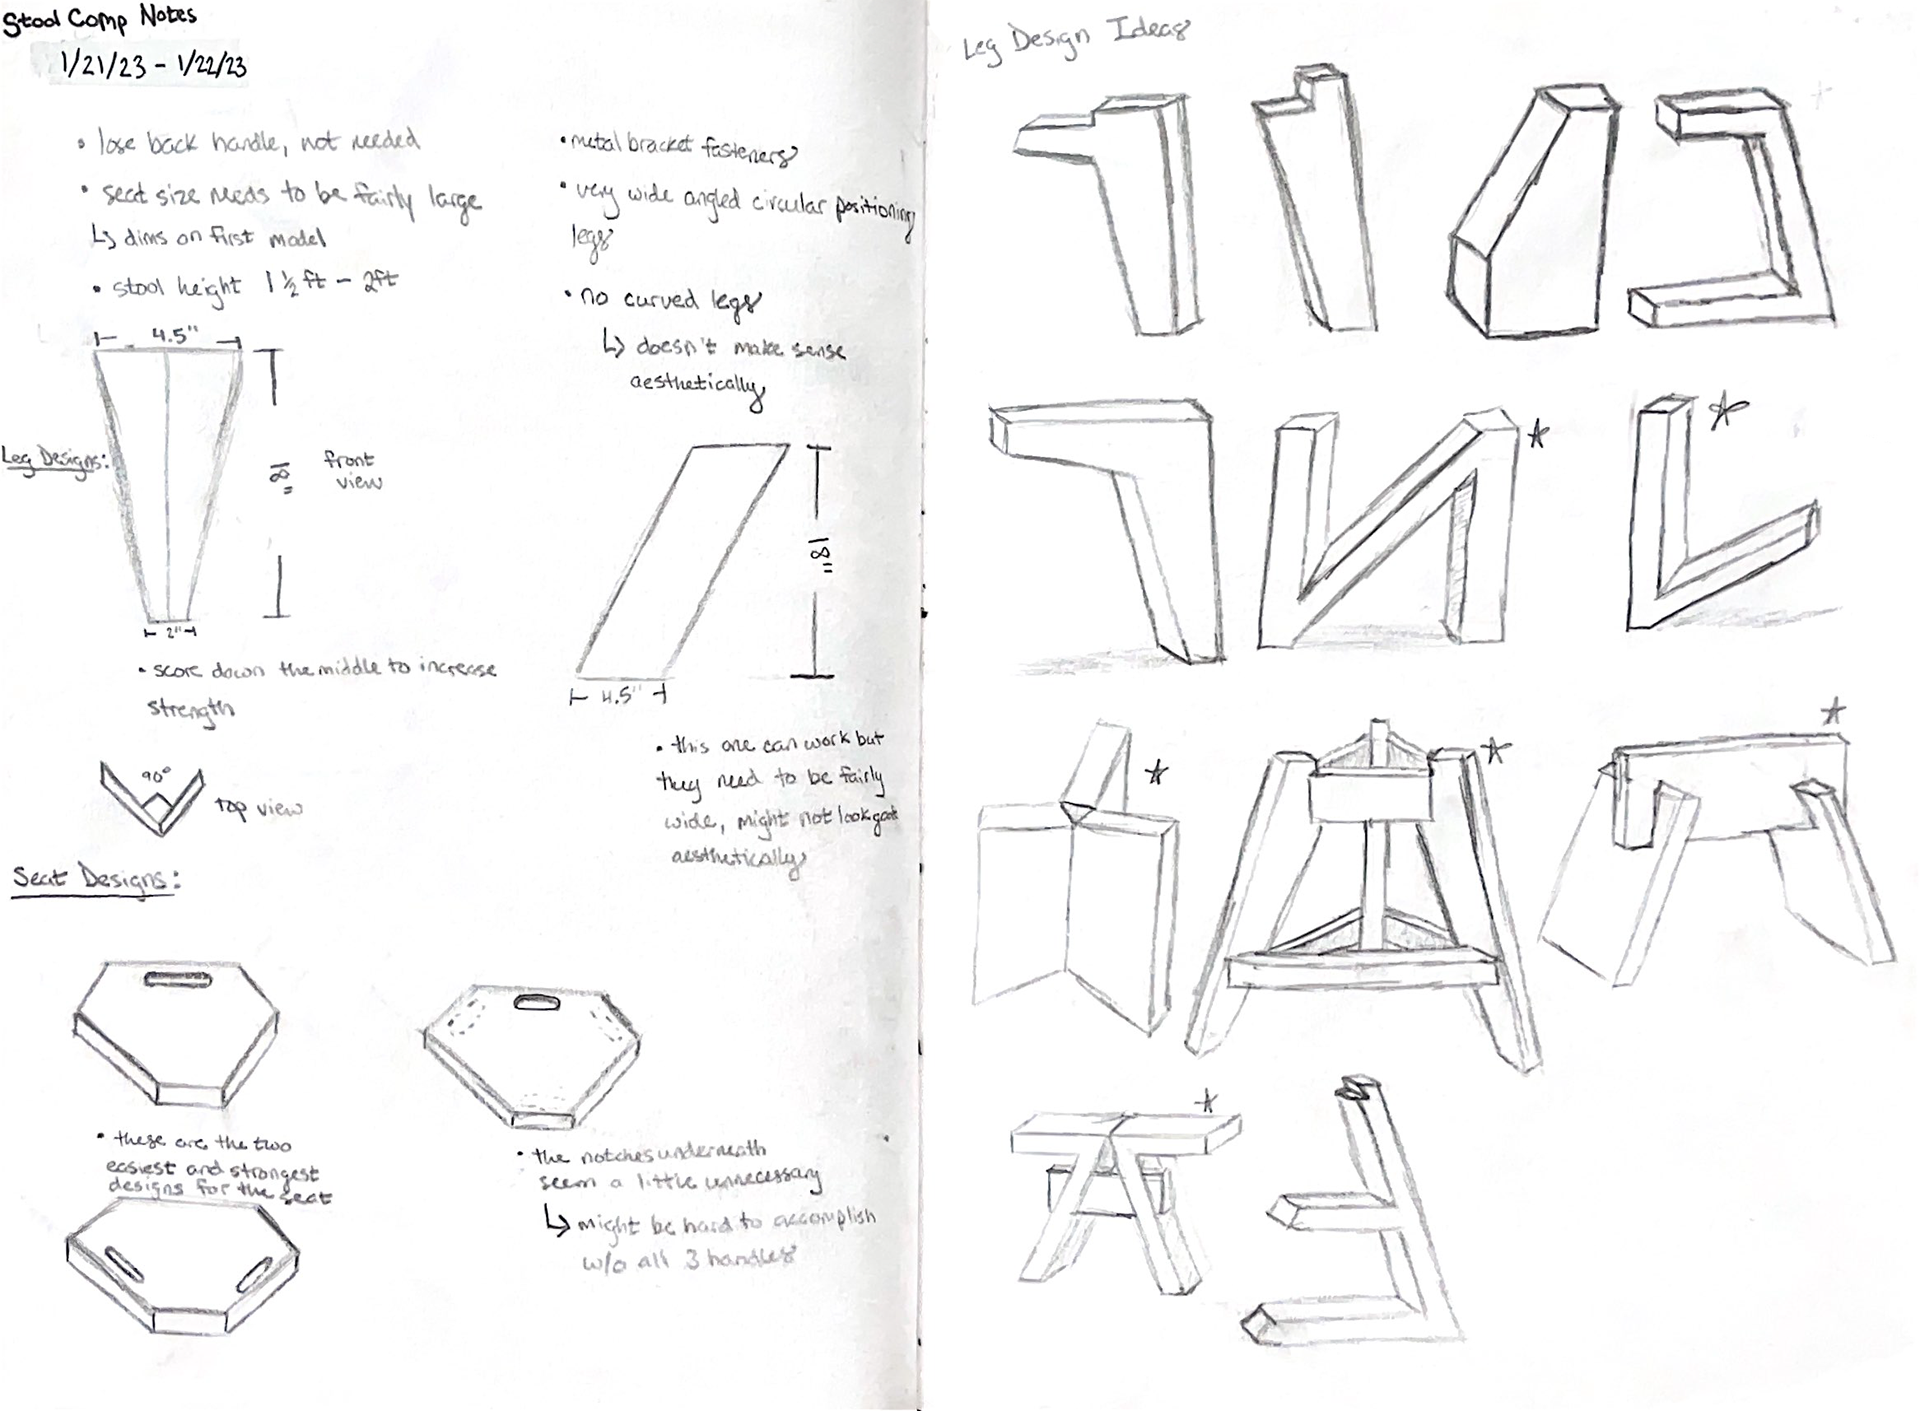 Stool Comp Notes
1/21/23 - 1/22/23
• lose back handle, not needed
• seat size needs to be fairly large
↳ dims on first model
• stool height 1 ½ ft - 2ft
4.5"
Leg Designs:
18"
front
view
2"
• score down the middle to increase
strength
90°
top view
• metal bracket fasteners
• very wide angled circular positioning
legs
• no curved legs
↳ doesn't make sense
aesthetically
18"
4.5"
• this one can work but
they need to be fairly
wide, might not look good
aesthetically
Seat Designs:
• these are the two
easiest and strongest
designs for the seat
• the notches underneath
seem a little unnecessary
↳ might be hard to accomplish
w/o all 3 handles
Leg Design Ideas